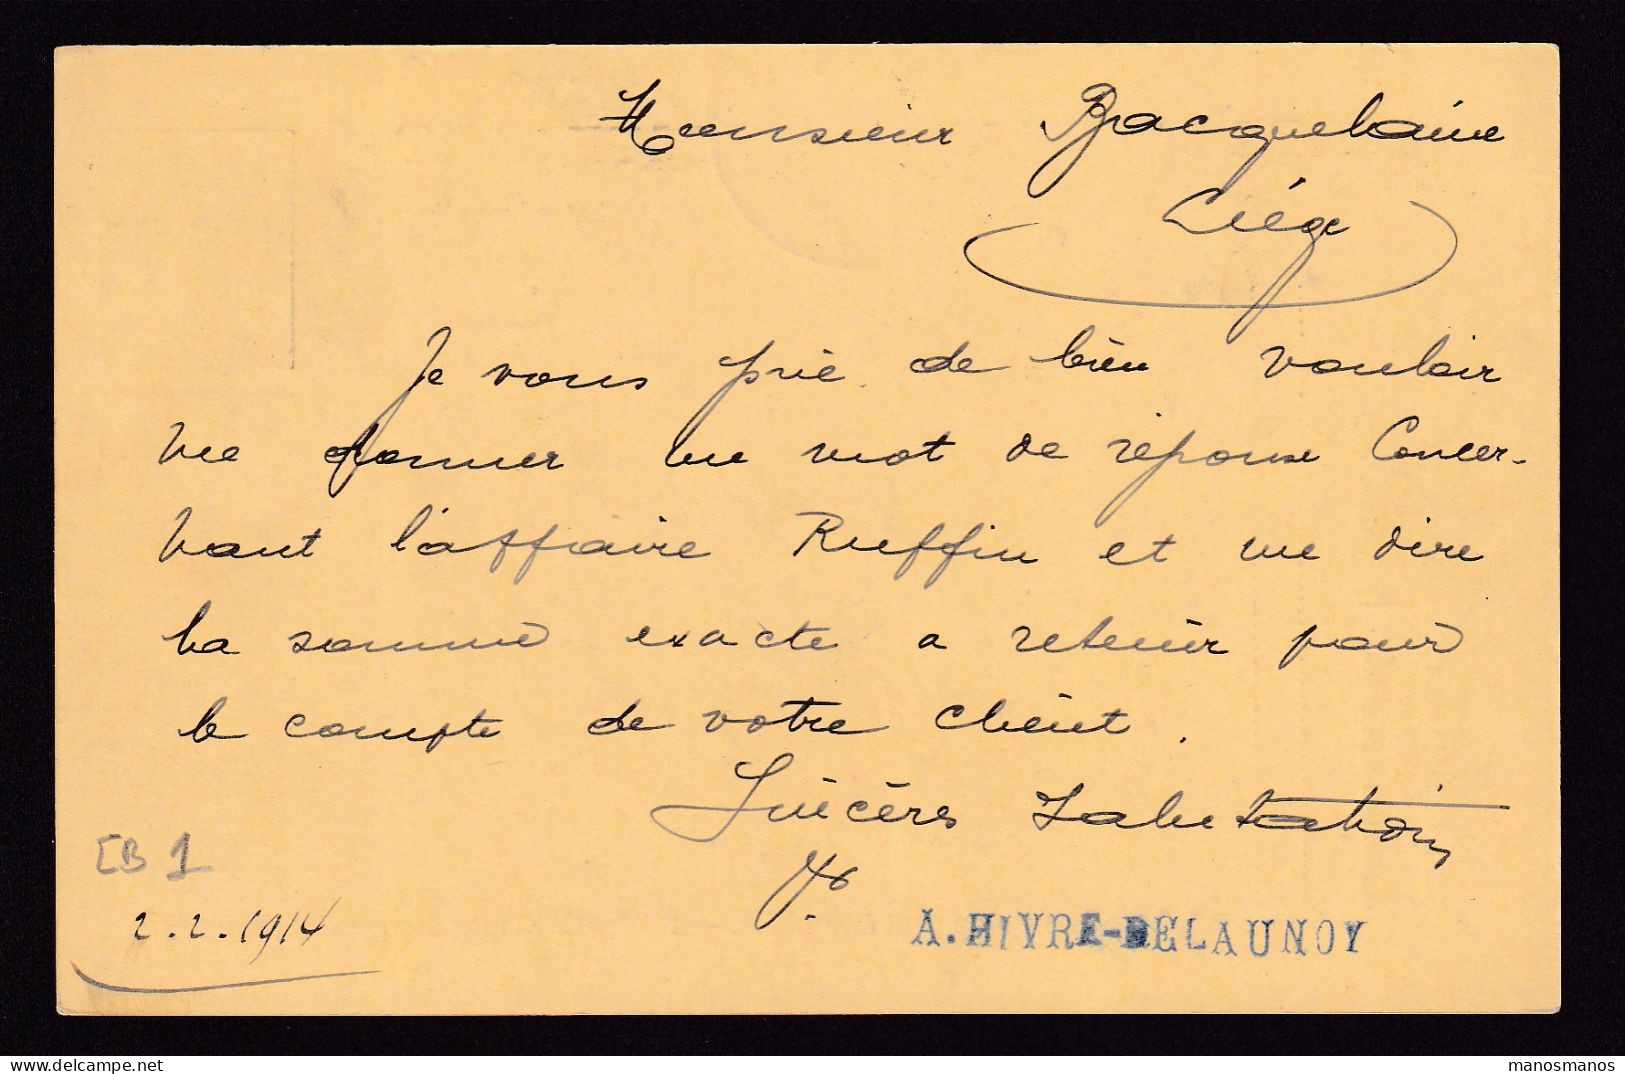 Monsieur Bacquelaine
Liége
Je vous prie de bien vouloir
me donner un mot de réponse concer-
nant l'affaire Ruffin et me dire
la somme exacte a retenir pour
le compte de votre client.
Sincères salutations
EB 1
2.2.1914
A. HIVRE-DELAUNOY
manosmanos